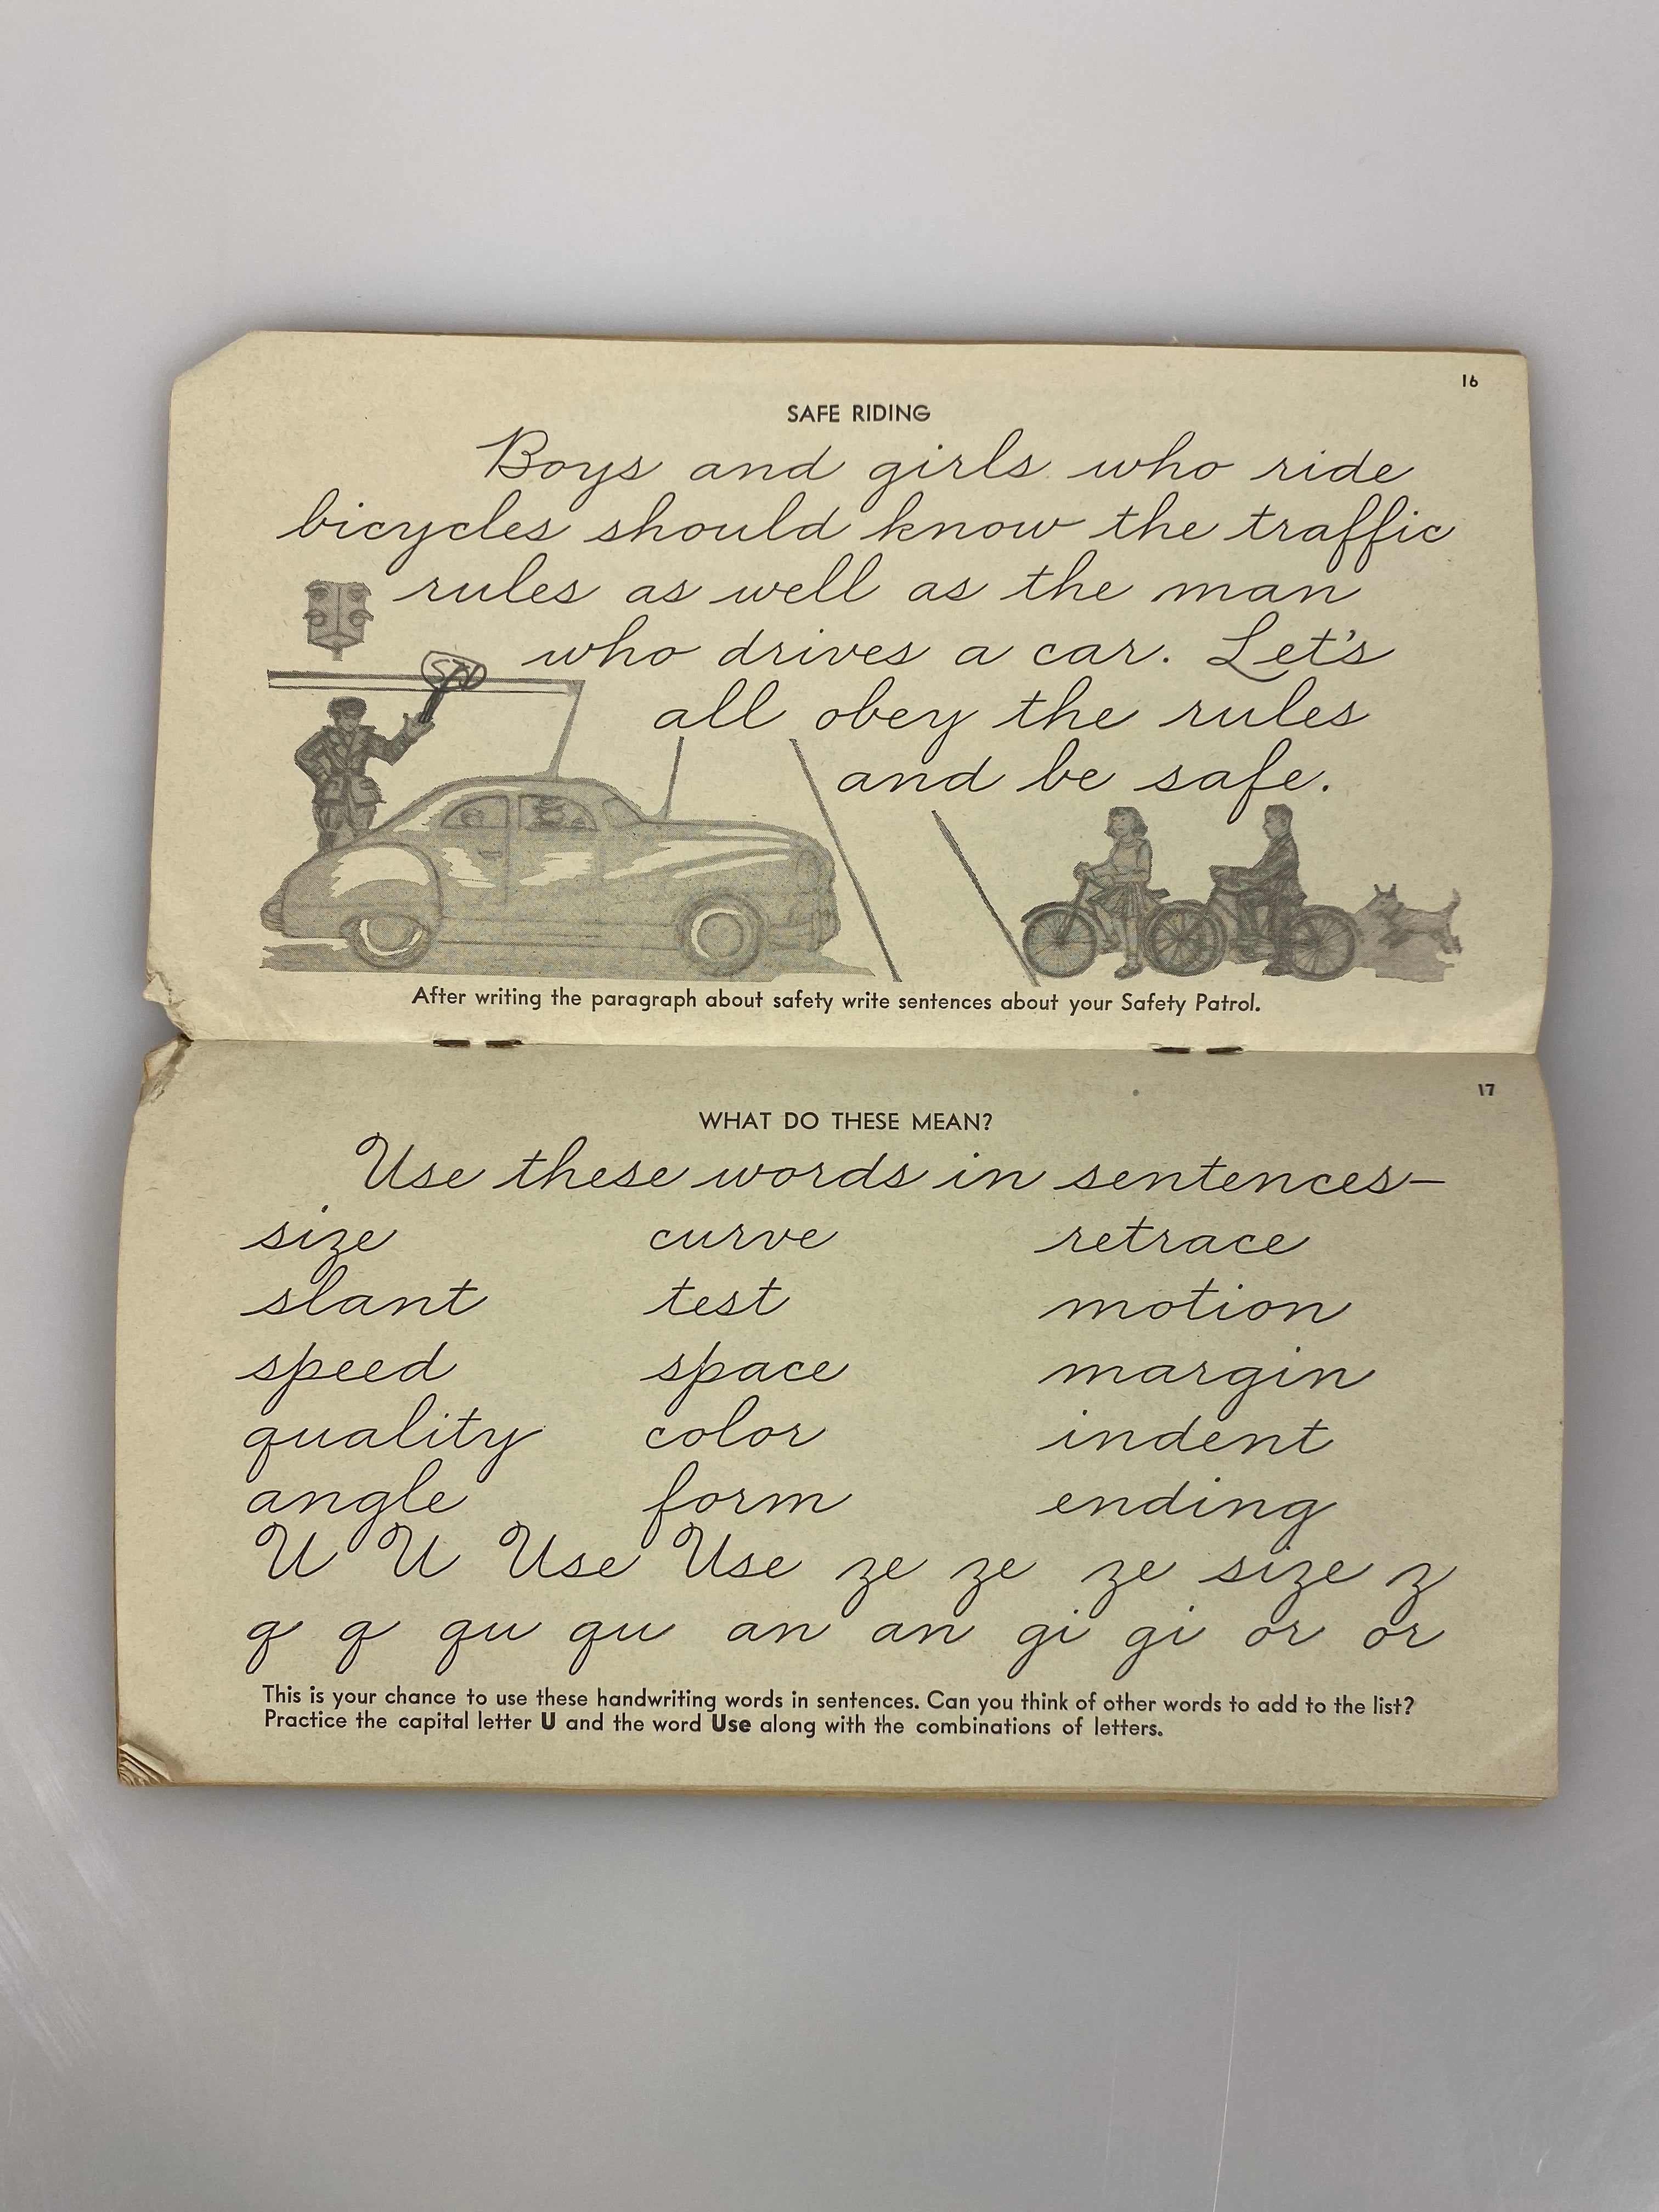 16
SAFE RIDING
Boys and girls who ride
bicycles should know the traffic
rules as well as the man
who drives a car. Let's
all obey the rules
and be safe.
After writing the paragraph about safety write sentences about your Safety Patrol.
17
WHAT DO THESE MEAN?
Use these words in sentences—
size curve retrace
slant test motion
speed space margin
quality color indent
angle form ending
U U Use Use ze ze ze size z
q q qu qu an an gi gi or or
This is your chance to use these handwriting words in sentences. Can you think of other words to add to the list?
Practice the capital letter U and the word Use along with the combinations of letters.